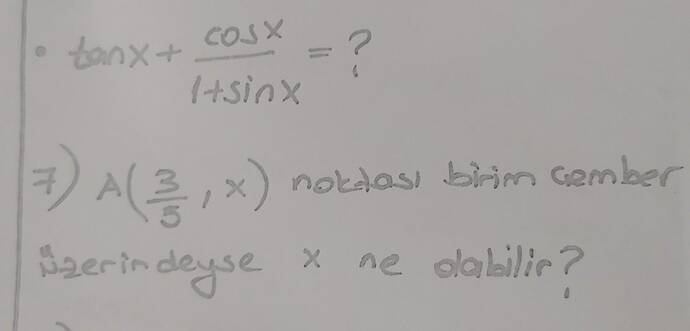 • tanx + cosx / 1+sinx = ?
7) A(3/5, x) noktası birim çember
üzerindeyse x ne olabilir?